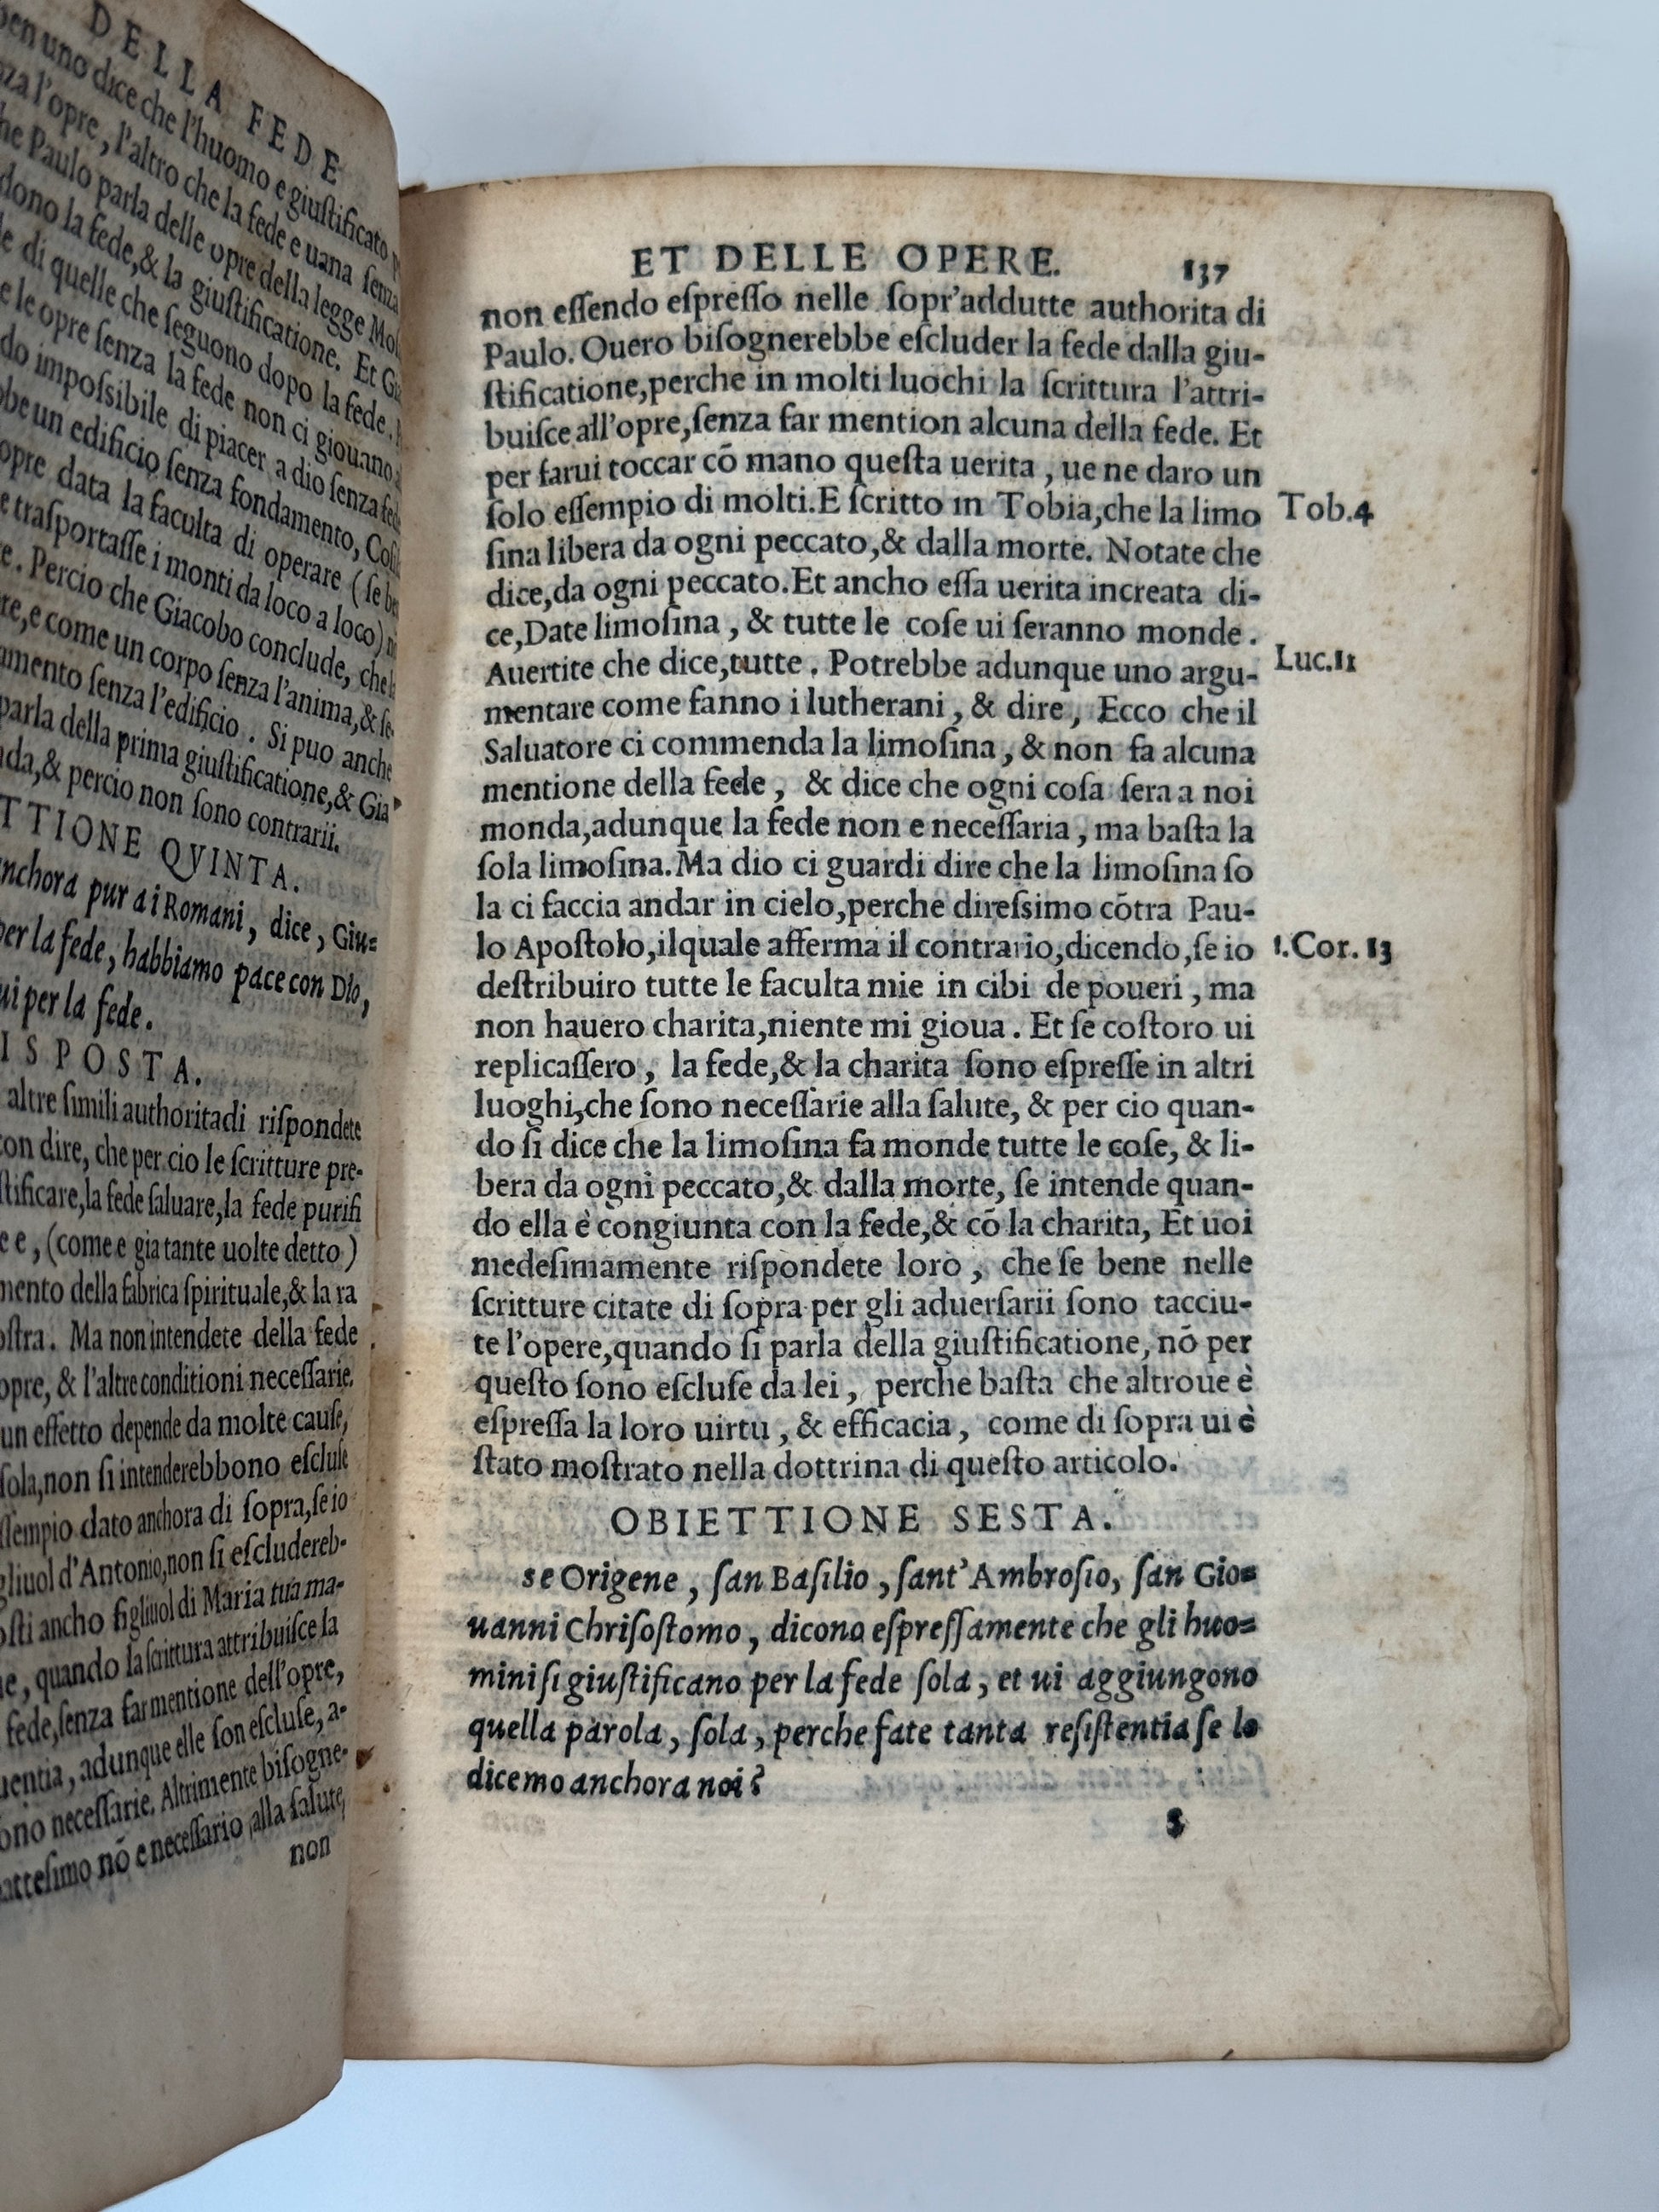 DELLA FEDE
ben uno dice che l'huomo e giuſtificato
l'opre, l'altro che la fede e uana ſenza
Paulo parla delle opre della legge Moſ
dono la fede,& la giuſtificatione. Et Gia
di quelle che ſeguono dopo la fede.
le opre ſenza la fede non ci giouano
do impoſsibile di piacer a dio ſenza fede
un edificio ſenza fondamento, Coſi
opre data la faculta di operare (ſe be
traſportaſſe i monti da loco a loco)
. Percio che Giacobo conclude, che
e come un corpo ſenza l'anima,& ſe-
amento ſenza l'edificio . Si puo anche
parla della prima giuſtificatione,& Gia
da,& percio non ſono contrarii.
TTIONE QVINTA.
nchora pur a i Romani, dice, Giu=
per la fede, habbiamo pace con Dio,
ui per la fede.
ISPOSTA.
altre ſimili authorita di riſpondete
on dire, che per cio le ſcritture pre-
ſtificare,la fede ſaluare,la fede purifi
e, (come e gia tante uolte detto)
mento della fabrica ſpirituale,& la ra
oſtra. Ma non intendete della fede
opre, & l'altre conditioni neceſſarie.
un effetto depende da molte cauſe,
ſola,non ſi intenderebbono eſcluſe
ſſempio dato anchora di ſopra,ſe io
gliuol d'Antonio,non ſi eſcludereb-
oſti ancho figliuol di Maria tua ma-
e, quando la ſcrittura attribuiſce la
fede,ſenza far mentione dell'opre,
uentia, adunque elle ſon eſcluſe, a-
ono neceſſarie. Altrimente biſogne-
atteſimo nõ e neceſſario alla ſalute,
non
ET DELLE OPERE. 137
non eſſendo eſpreſſo nelle ſopr'addutte authorita di
Paulo. Ouero biſognerebbe eſcluder la fede dalla giu-
ſtificatione,perche in molti luochi la ſcrittura l'attri-
buiſce all'opre,ſenza far mention alcuna della fede. Et
per farui toccar cõ mano queſta uerita , ue ne daro un
ſolo eſſempio di molti.E ſcritto in Tobia,che la limo
Tob.4
ſina libera da ogni peccato,& dalla morte. Notate che
dice,da ogni peccato.Et ancho eſſa uerita increata di-
ce,Date limoſina , & tutte le coſe ui ſeranno monde .
Auertite che dice,tutte . Potrebbe adunque uno argu-
Luc.11
mentare come fanno i lutherani , & dire , Ecco che il
Saluatore ci commenda la limoſina , & non fa alcuna
mentione della fede , & dice che ogni coſa ſera a noi
monda,adunque la fede non e neceſſaria , ma baſta la
ſola limoſina.Ma dio ci guardi dire che la limoſina ſo
la ci faccia andar in cielo,perche direſsimo cõtra Pau-
lo Apoſtolo,ilquale afferma il contrario,dicendo,ſe io
1.Cor. 13
deſtribuiro tutte le faculta mie in cibi de poueri , ma
non hauero charita,niente mi gioua . Et ſe coſtoro ui
replicaſſero , la fede,& la charita ſono eſpreſſe in altri
luoghi,che ſono neceſſarie alla ſalute, & per cio quan-
do ſi dice che la limoſina fa monde tutte le coſe, & li-
bera da ogni peccato,& dalla morte, ſe intende quan-
do ella è congiunta con la fede,& cõ la charita, Et uoi
medeſimamente riſpondete loro , che ſe bene nelle
ſcritture citate di ſopra per gli aduerſarii ſono tacciu-
te l'opere,quando ſi parla della giuſtificatione, nõ per
queſto ſono eſcluſe da lei , perche baſta che altroue è
eſpreſſa la loro uirtu , & efficacia , come di ſopra ui è
ſtato moſtrato nella dottrina di queſto articolo.
OBIETTIONE SESTA.
se Origene , ſan Baſilio , ſant'Ambroſio, ſan Gio=
uanni Chriſoſtomo , dicono eſpreſſamente che gli huo=
mini ſi giuſtificano per la fede ſola , et ui aggiungono
quella parola , ſola , perche fate tanta reſiſtentia ſe lo
dicemo anchora noi?
S